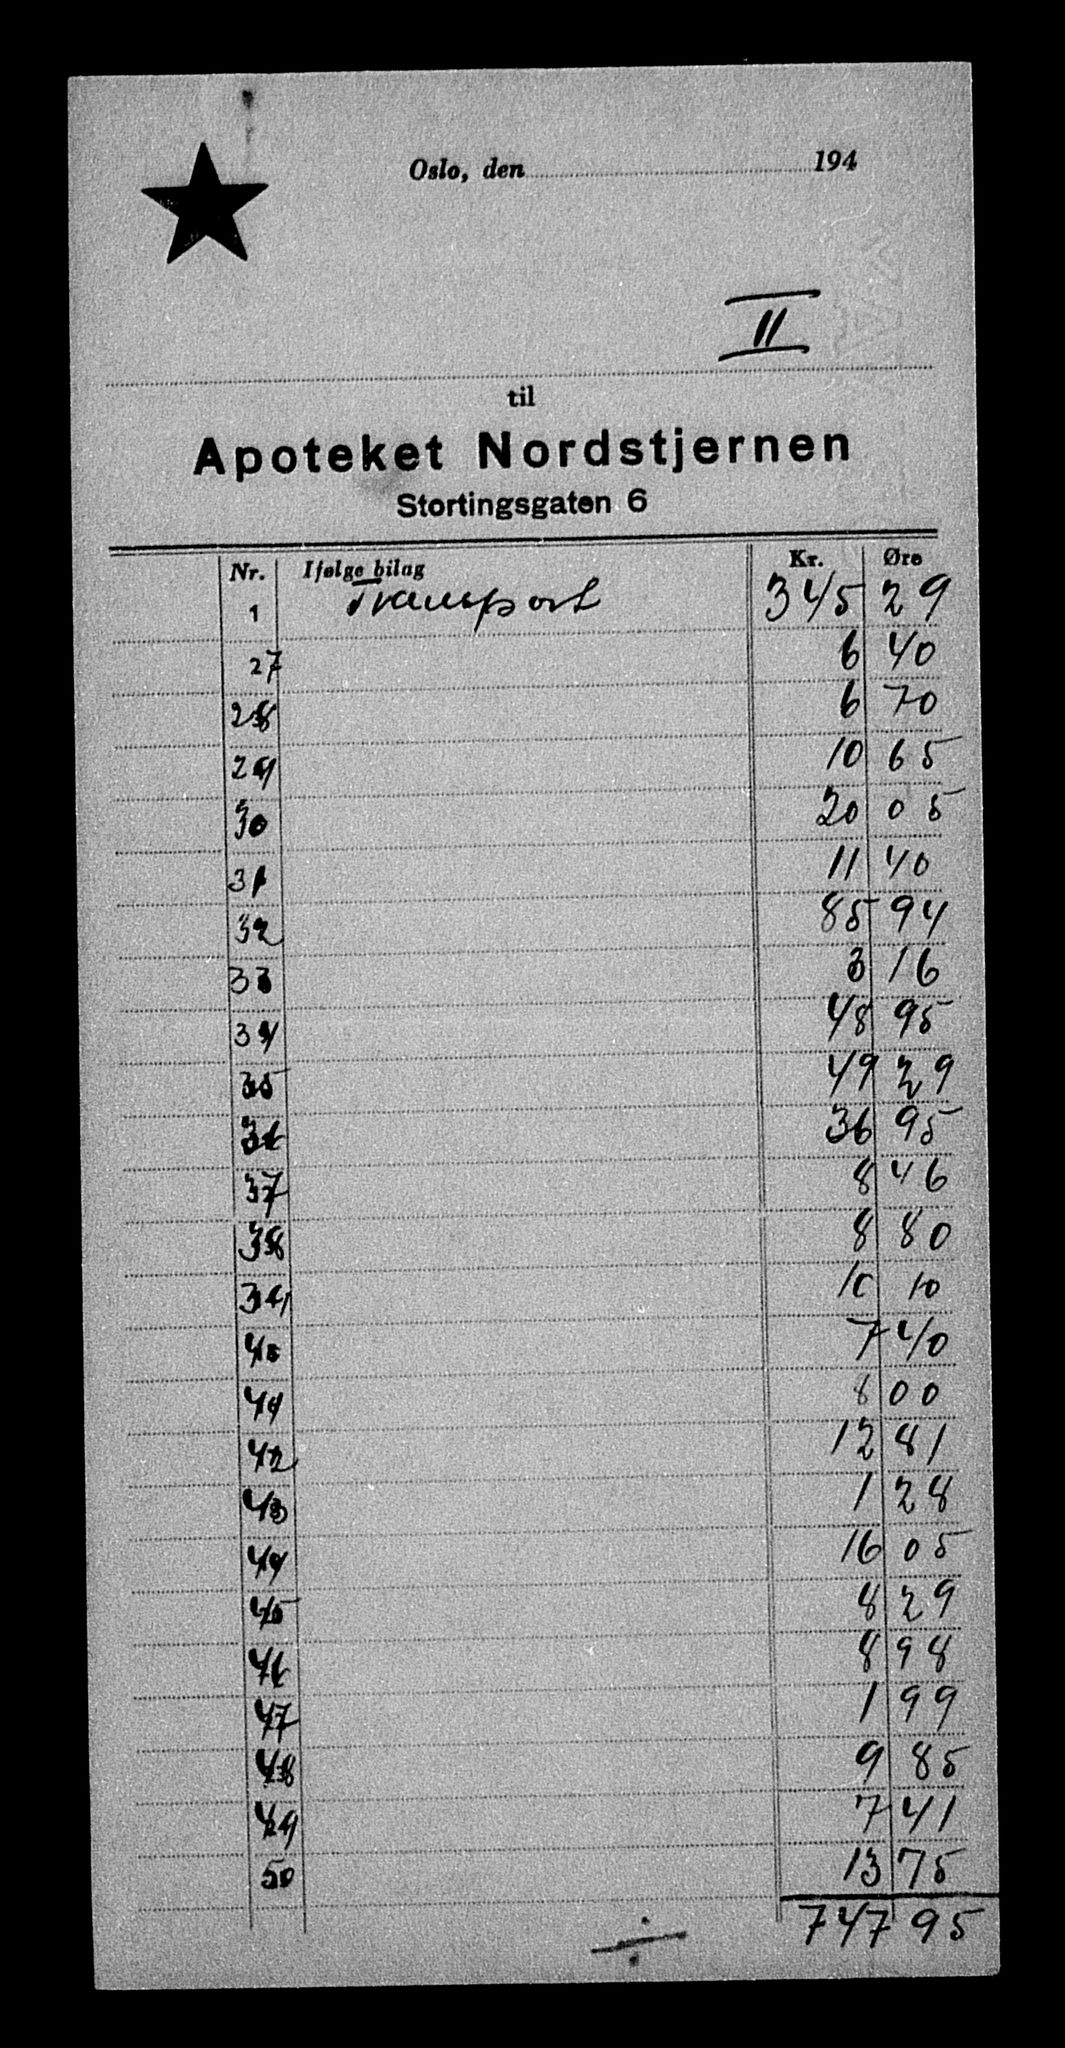 Oslo, den 194
II
til
Apoteket Nordstjernen
Stortingsgaten 6
Nr. Ifølge bilag Kr. Øre
1 Transport 345 29
27 6 40
28 6 70
29 10 65
30 20 05
31 11 40
32 85 94
33 3 16
34 48 95
35 49 29
36 36 95
37 8 46
38 8 80
39 10 10
40 7 40
41 8 00
42 12 81
43 1 28
44 16 05
45 8 29
46 8 98
47 1 99
48 9 85
49 7 41
50 13 75
747 95